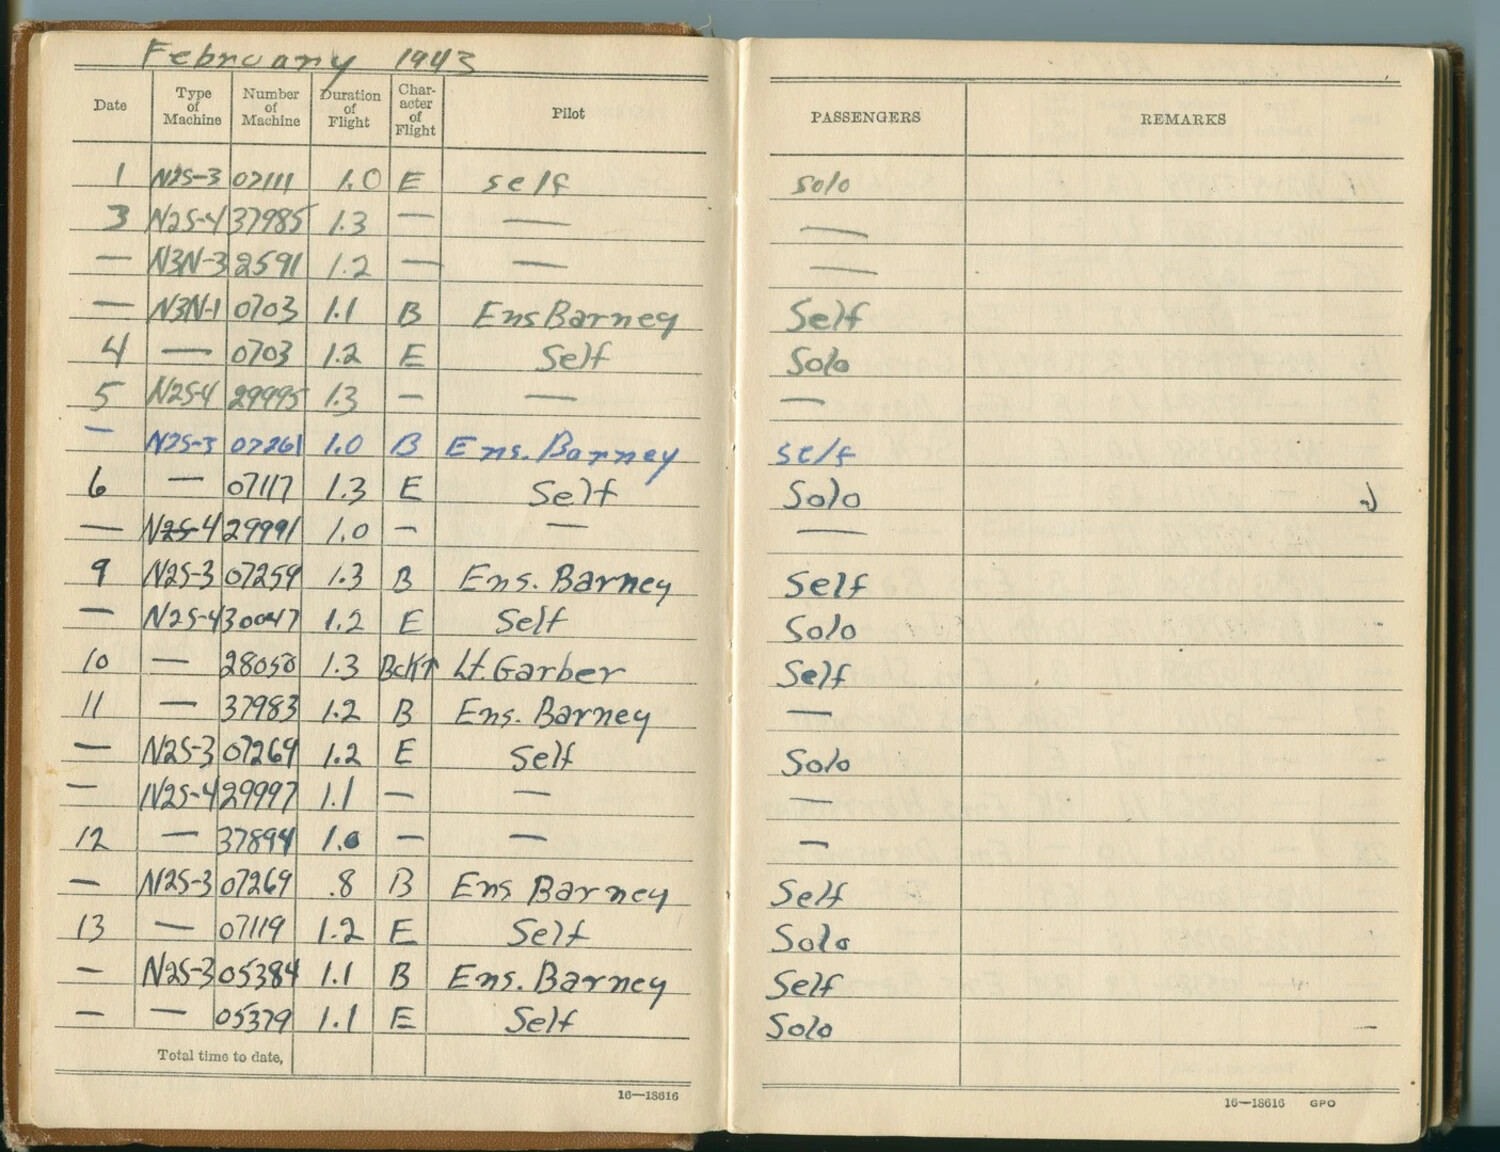 February 1943
Date Type of Machine Number of Machine Duration of Flight Char-acter of Flight Pilot PASSENGERS REMARKS
1 N2S-3 07111 1.0 E self solo
3 N2S-4 37985 1.3 — — —
— N3N-3 2591 1.2 — — —
— N3N-1 0703 1.1 B Ens Barney Self
4 — 0703 1.2 E Self Solo
5 N2S-4 29995 1.3 — — —
— N2S-3 07261 1.0 B Ens. Barney self
6 — 07117 1.3 E Self Solo
— N2S-4 29991 1.0 — — —
9 N2S-3 07259 1.3 B Ens. Barney Self
— N2S-4 30047 1.2 E Self Solo
10 — 28050 1.3 Lt. Garber Self
11 — 37983 1.2 B Ens. Barney —
— N2S-3 07269 1.2 E Self Solo
— N2S-4 29997 1.1 — — —
12 — 37894 1.0 — — —
— N2S-3 07269 .8 B Ens Barney Self
13 — 07119 1.2 E Self Solo
— N2S-3 05384 1.1 B Ens. Barney Self
— — 05379 1.1 E Self Solo —
Total time to date,
16—18616 16—18616 GPO